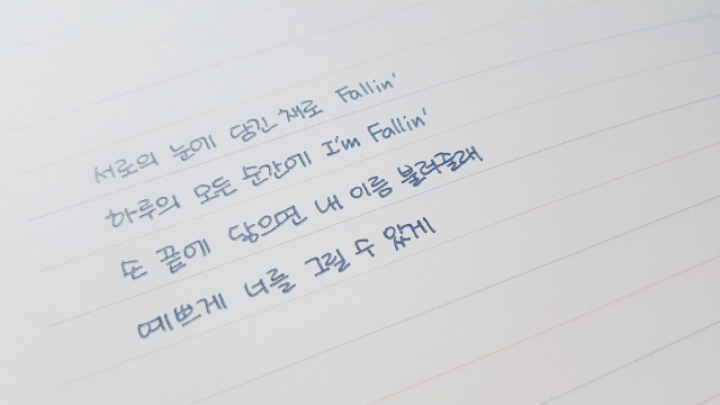 서로의 눈에 담긴 채로 Fallin'
하루의 모든 순간에 I'm Fallin'
손 끝에 닿으면 내 이름 불러줄래
예쁘게 너를 그릴 수 있게